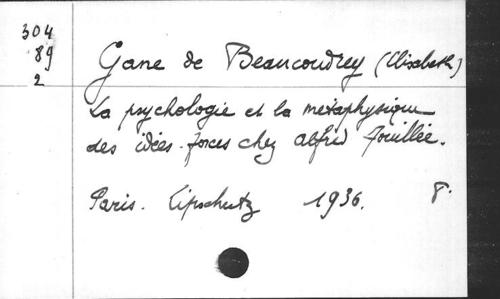 304
89
2
Gane de Beaucoudrey (Elisabeth)
La psychologie et la métaphysique
des idées-forces chez Alfred Fouillée.
Paris. Lipschutz 1936. 8°.